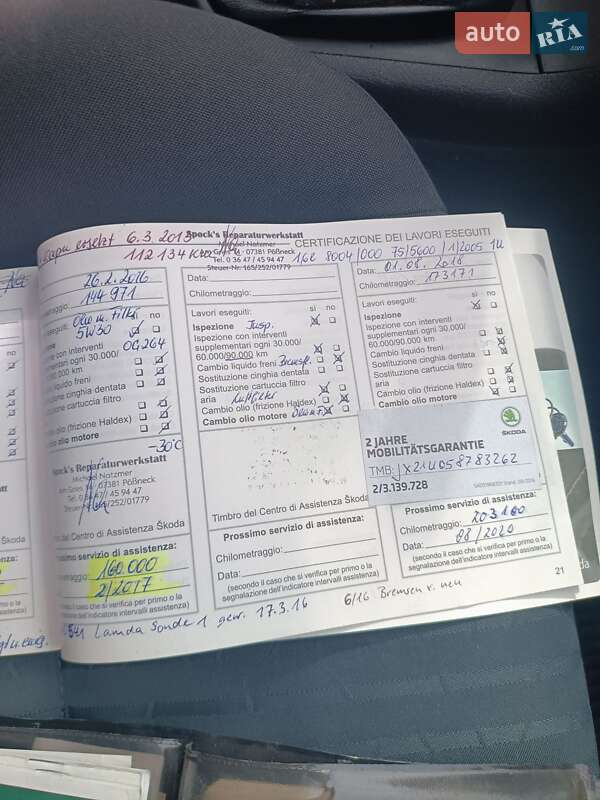 auto RIA .com
ersetzt 6.3.2013
112 134 Km
Spock's Reparaturwerkstatt
Michael Natzmer
07381 Pößneck
Tel. 0 36 47 / 45 94 47
Steuer-Nr. 165/252/01779
CERTIFICAZIONE DEI LAVORI ESEGUITI
162 8004/000 75/5600/1/2005 14
26.2.2016
144 971
Olio m. Filter
5W30
no
Ispezione
Ispezione con interventi
supplementari ogni 30.000/
60.000/90.000 km
OG264
liquido freni
Sostituzione cinghia dentata
Sostituzione cartuccia filtro
Cambio olio (frizione Haldex)
Cambio olio motore
-30°C
Spock's Reparaturwerkstatt
Michael Natzmer
07381 Pößneck
Tel. 0 36 47 / 45 94 47
/252/01779
Timbro del Centro di Assistenza Škoda
Prossimo servizio di assistenza:
160.000
2/2017
(secondo il caso che si verifica per primo o la
segnalazione dell'indicatore intervalli assistenza)
Data:
Chilometraggio:
Lavori eseguiti:
si no
Ispezione Insp.
Ispezione con interventi
supplementari ogni 30.000/
60.000/90.000 km
Cambio liquido freni
Sostituzione cinghia dentata
Sostituzione cartuccia filtro
aria Luftfilter
Cambio olio (frizione Haldex)
Cambio olio motore
Timbro del Centro di Assistenza Škoda
Prossimo servizio di assistenza:
Chilometraggio:
Data:
(secondo il caso che si verifica per primo o la
segnalazione dell'indicatore intervalli assistenza)
Data: 01.08.2018
Chilometraggio: 173171
Lavori eseguiti:
si no
Ispezione
Ispezione con interventi
supplementari ogni 30.000/
60.000/90.000 km
Cambio liquido freni
Sostituzione cinghia dentata
Sostituzione cartuccia filtro
aria
Cambio olio (frizione Haldex)
Cambio olio motore
2 JAHRE
MOBILITÄTSGARANTIE
ŠKODA
TMB: JX21U058783262
2/3.139.728
Prossimo servizio di assistenza:
Chilometraggio: 203160
Data: 08/2020
(secondo il caso che si verifica per primo o la
segnalazione dell'indicatore intervalli assistenza)
21
Lamda Sonde 1 gew. 17.3.16
6/16 Bremsen v. neu